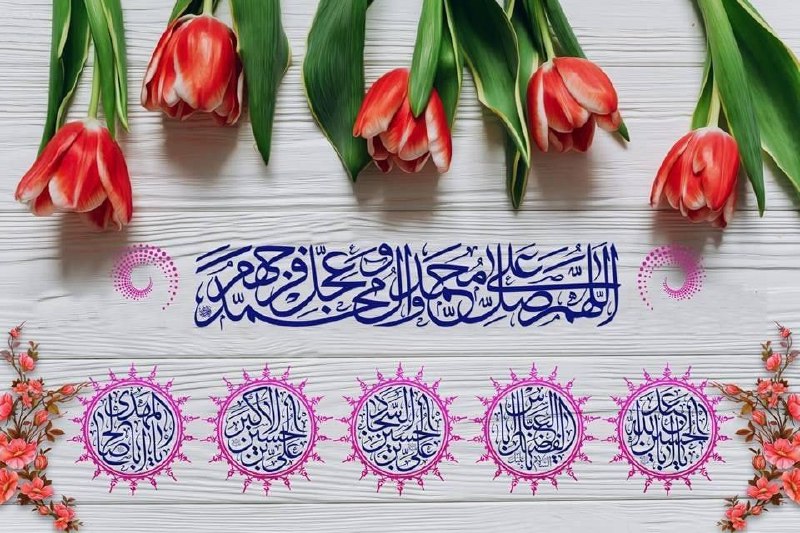 اللهم صل على محمد وآل محمد وعجل فرجهم
يا أبا عبد الله الحسين
يا أبا الفضل العباس
علي بن الحسين السجاد
علي بن الحسين الأكبر
يا أبا صالح المهدي